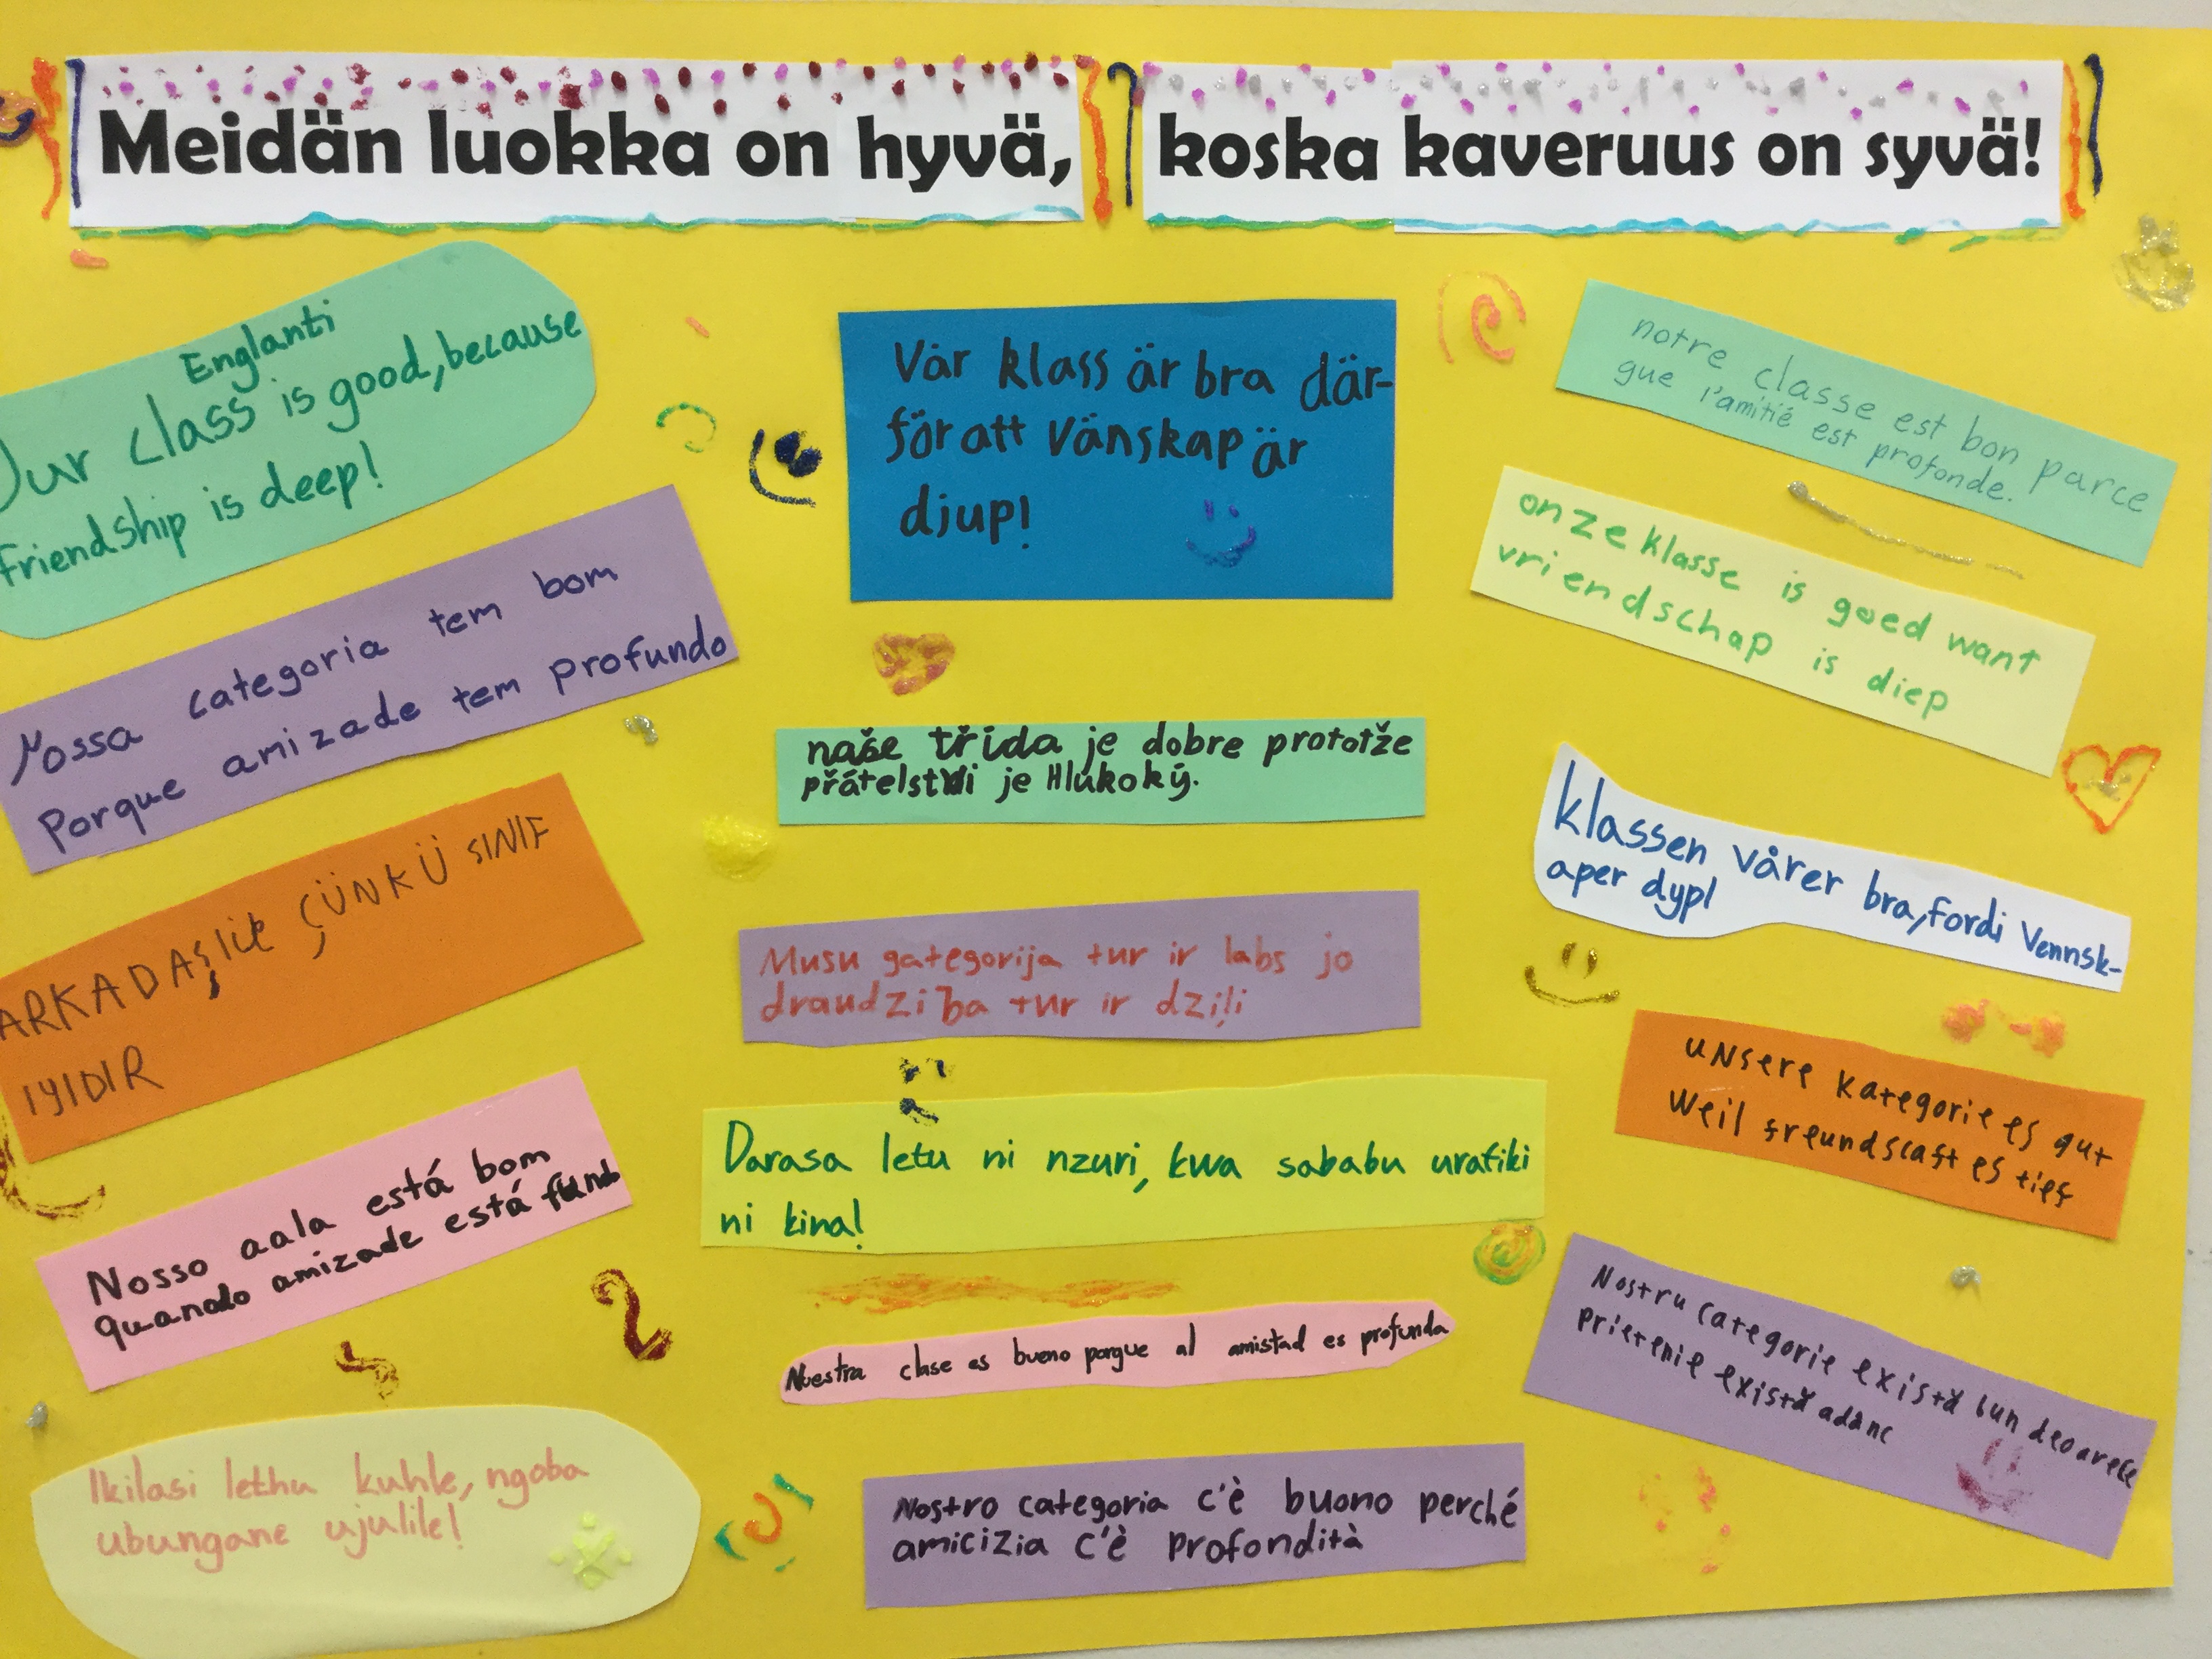 Meidän luokka on hyvä, koska kaveruus on syvä!
Englanti
Our class is good, because
friendship is deep!
Nossa categoria tem bom
Porque amizade tem profundo
ARKADAŞlik ÇÜNKÜ SINIF
IYIDIR
Nosso aala está bom
quando amizade está fundo
Ikilasi lethu kuhle, ngoba
ubungane ujulile!
Vår klass är bra där-
för att vänskap är
djup!
naše třída je dobre prototže
přátelství je Hlukoký.
Musu gategorija tur ir labs jo
draudzība tur ir dziļi
Darasa letu ni nzuri, kwa sababu urafiki
ni kina!
Nuestra clase es bueno porque al amistad es profunda
Nostro categoria c'è buono perché
amicizia c'è profondità
notre classe est bon parce
que l'amitié est profonde.
onze klasse is goed want
vriendschap is diep
klassen vårer bra, fordi Vennsk-
aper dyp!
unsere kategorie es gut
weil freundscaft es tief
Nostru categorie există bun deoarece
prietenie există adânc